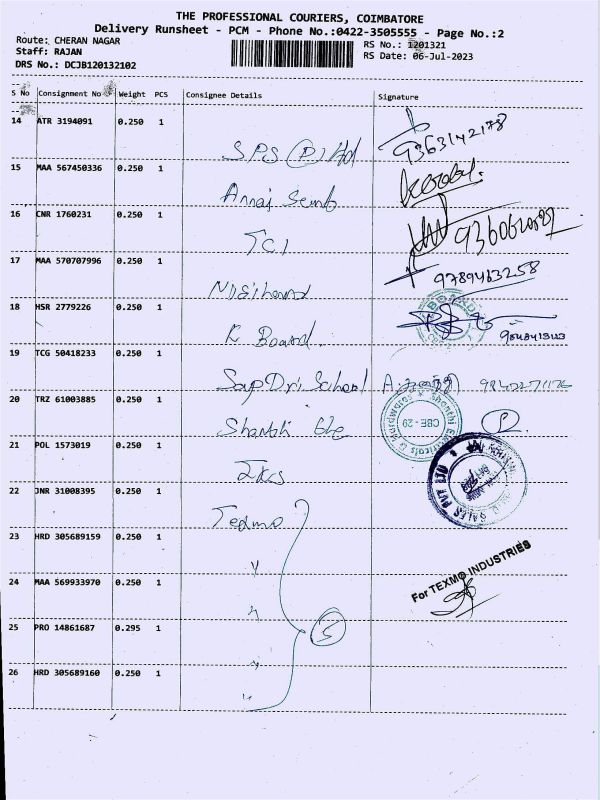 THE PROFESSIONAL COURIERS, COIMBATORE
Delivery Runsheet - PCM - Phone No.:0422-3505555 - Page No.:2
Route: CHERAN NAGAR
RS No.: 1201321
Staff: RAJAN
RS Date: 06-Jul-2023
DRS No.: DCJB120132102
S No Consignment No Weight PCS Consignee Details Signature
14 ATR 3194091 0.250 1
SPS (P) Ltd 9363142178
15 MAA 567450336 0.250 1
16 CNR 1760231 0.250 1
TCI
17 MAA 570707996 0.250 1
9789463258
18 HSR 2779226 0.250 1
K Board
19 TCG 50418233 0.250 1
20 TRZ 61003885 0.250 1
Shanthi Ele
Shanthi Electricals & Hardwares
CBE - 29
21 POL 1573019 0.250 1
SALES PVT LTD
22 JNR 31008395 0.250 1
Texmo
23 HRD 305689159 0.250 1
For TEXMO INDUSTRIES
24 MAA 569933970 0.250 1
25 PRO 14861687 0.295 1
5
26 HRD 305689160 0.250 1